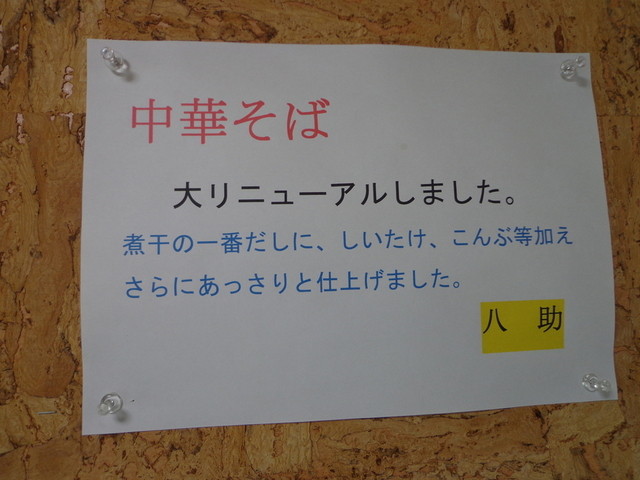 中華そば
大リニューアルしました。
煮干の一番だしに、しいたけ、こんぶ等加え
さらにあっさりと仕上げました。
八　助